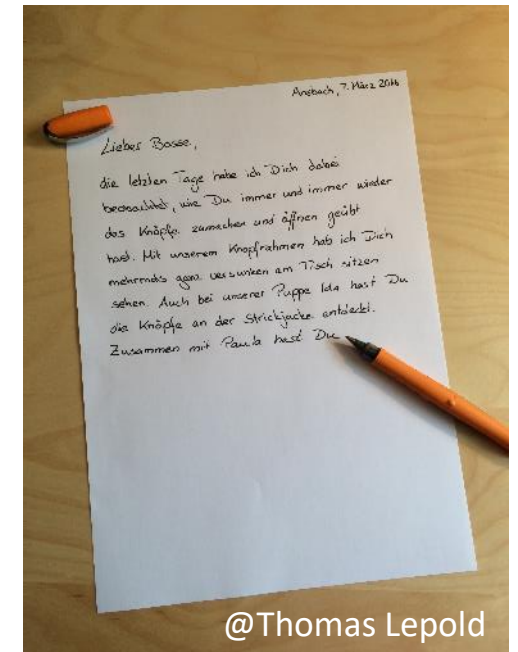 Ansbach, 7. März 2016
Lieber Bosse,
die letzten Tage habe ich Dich dabei
beobachtet, wie Du immer und immer wieder
das Knöpfe zumachen und öffnen geübt
hast. Mit unserem Knopfrahmen hab ich Dich
mehrmals ganz versunken am Tisch sitzen
sehen. Auch bei unserer Puppe Ida hast Du
die Knöpfe an der Strickjacke entdeckt.
Zusammen mit Paula hast Du
@Thomas Lepold